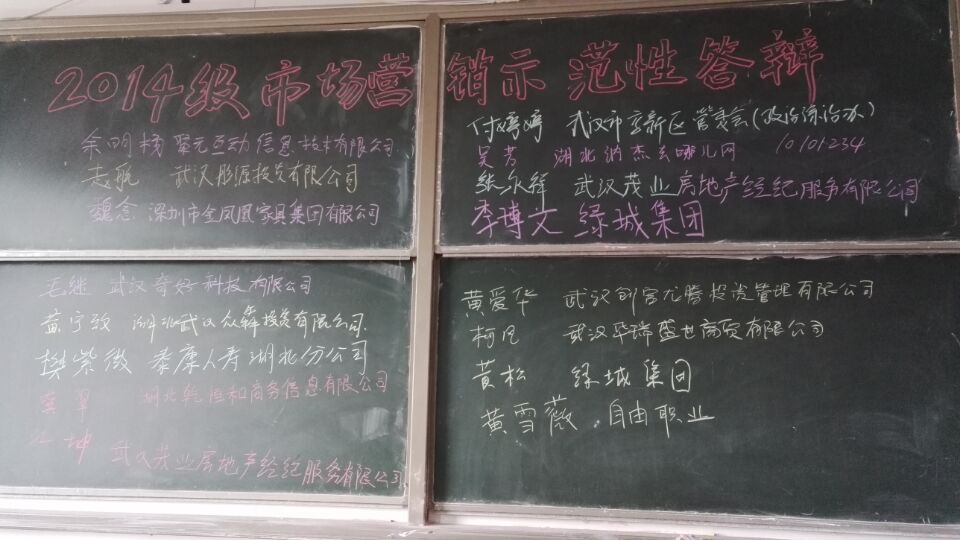 2014级市场营销示范性答辩
余明杨 聚元互动信息技术有限公司
志航 武汉彤源投资有限公司
魏念 深圳市全凤凰家具集团有限公司
付婷婷 武汉市高新区管委会(政治综治办)
吴芳 湖北 杰去哪儿网 10101234
武汉茂业房地产经纪服务有限公司
李博文 绿城集团
毛继 武汉奇好科技有限公司
黄宇致 湖北武汉众犇投资有限公司
樊紫微 泰康人寿湖北分公司
翠 湖北乾恒和商务信息有限公司
坤 武汉茂业房地产经纪服务有限公司
黄爱华 武汉创客龙腾投资管理有限公司
柯凡 武汉华瑞盛世商贸有限公司
黄松 绿城集团
黄雪薇 自由职业